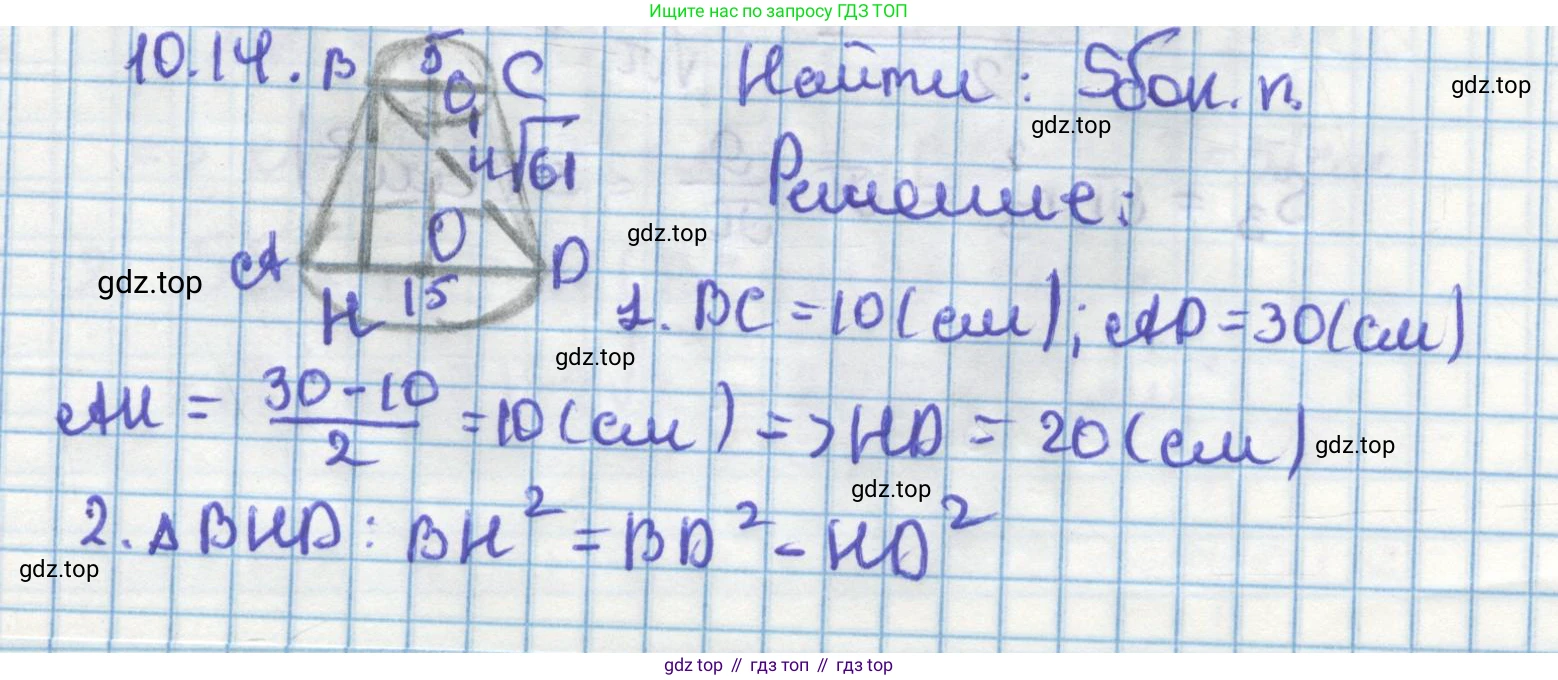 Ищите нас по запросу ГДЗ ТОП
10.14. B 5 C
O₁
4√61
A H 15 O D
Найти: Sбок. п.
Решение:
1. BC = 10(см); AD = 30(см)
AH = (30 - 10)/2 = 10(см) => HD = 20(см)
2. Δ BHD: BH² = BD² - HD²
gdz.top
gdz.top
gdz.top
gdz.top
gdz.top
gdz.top
gdz.top
gdz.top
gdz top // гдз топ // гдз top